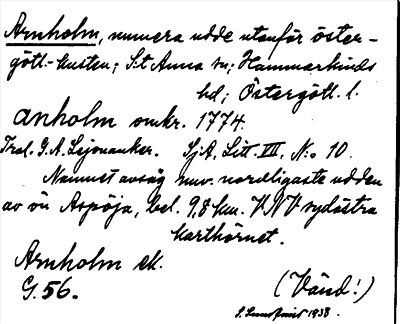 Arnholm, numera udde utanför öster-
götl.-kusten; S:t Anna sn; Hammarkinds
hd; Östergötl. l.
anholm omkr. 1774.
Trol. G. A. Lejonanker. SjA, Litt. VII, N:o 10.
Namnet avsåg nuv. nordligaste udden
av ön Aspöja, bel. 9,8 km. VNV sydöstra
karthörnet.
Arnholm ek.
G. 56. (Vänd!)
S. Lundqvist 1938.